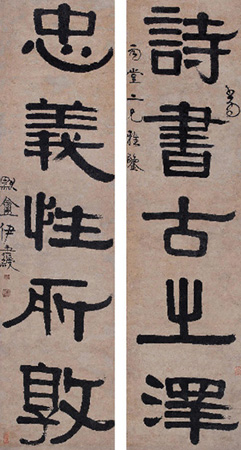 詩書古之澤
堂二兄雅鑒
忠義性所敦
默盦伊秉綬